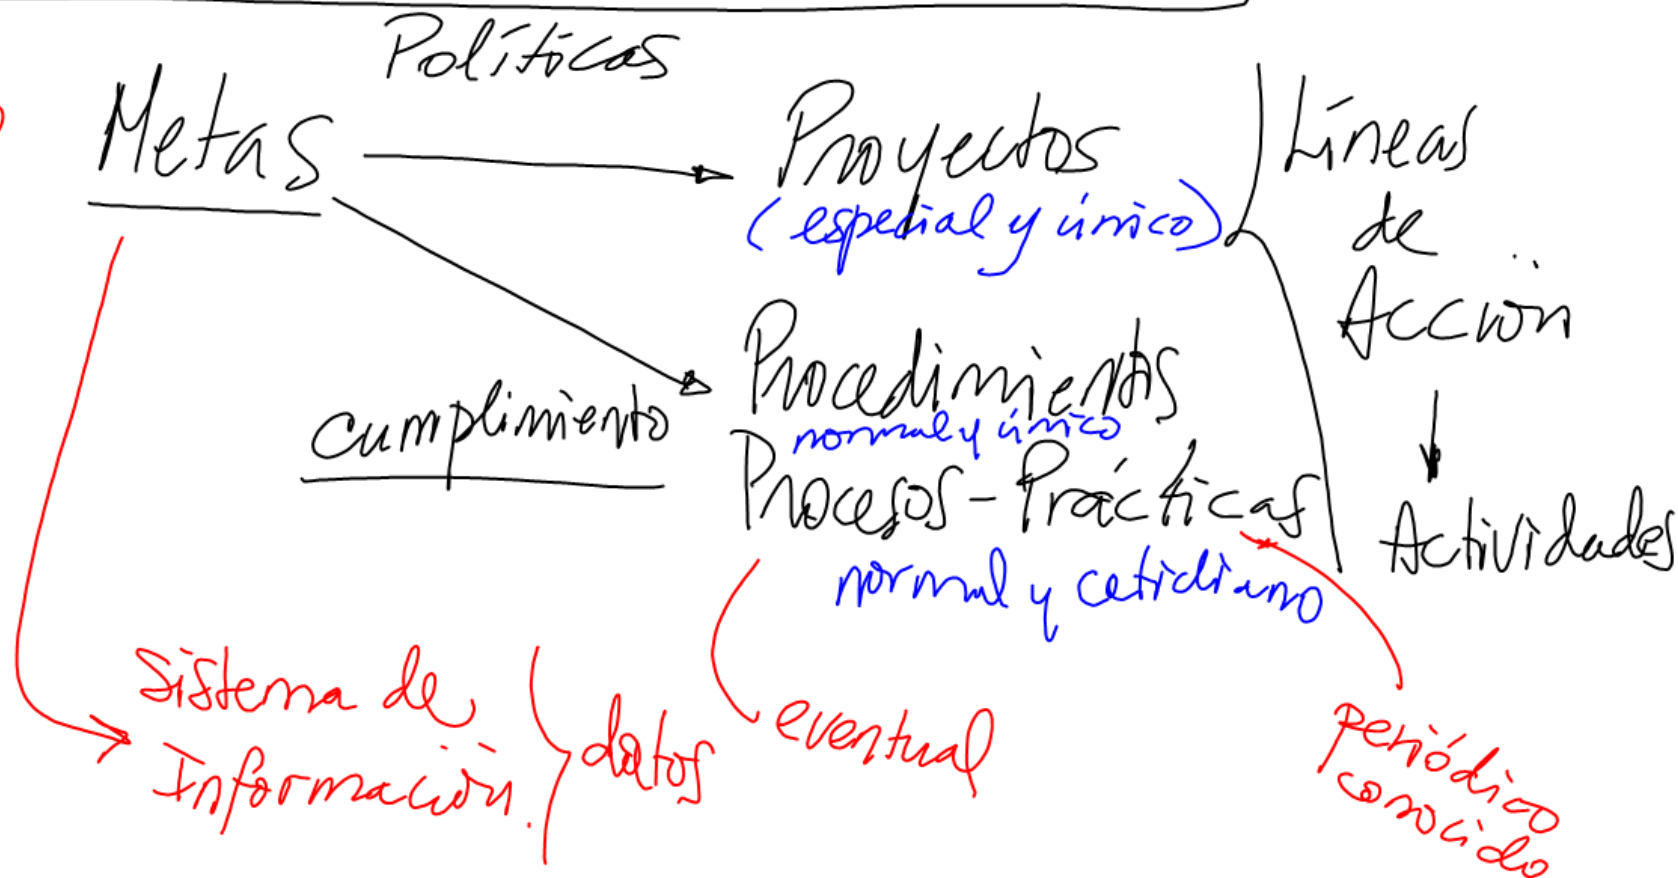 Políticas
Metas
Proyectos
(especial y único)
Líneas
de
Acción
Procedimientos
normal y único
cumplimiento
Procesos - Prácticas
normal y cotidiano
Actividades
Sistema de
Información.
datos
eventual
Periódico
conocido